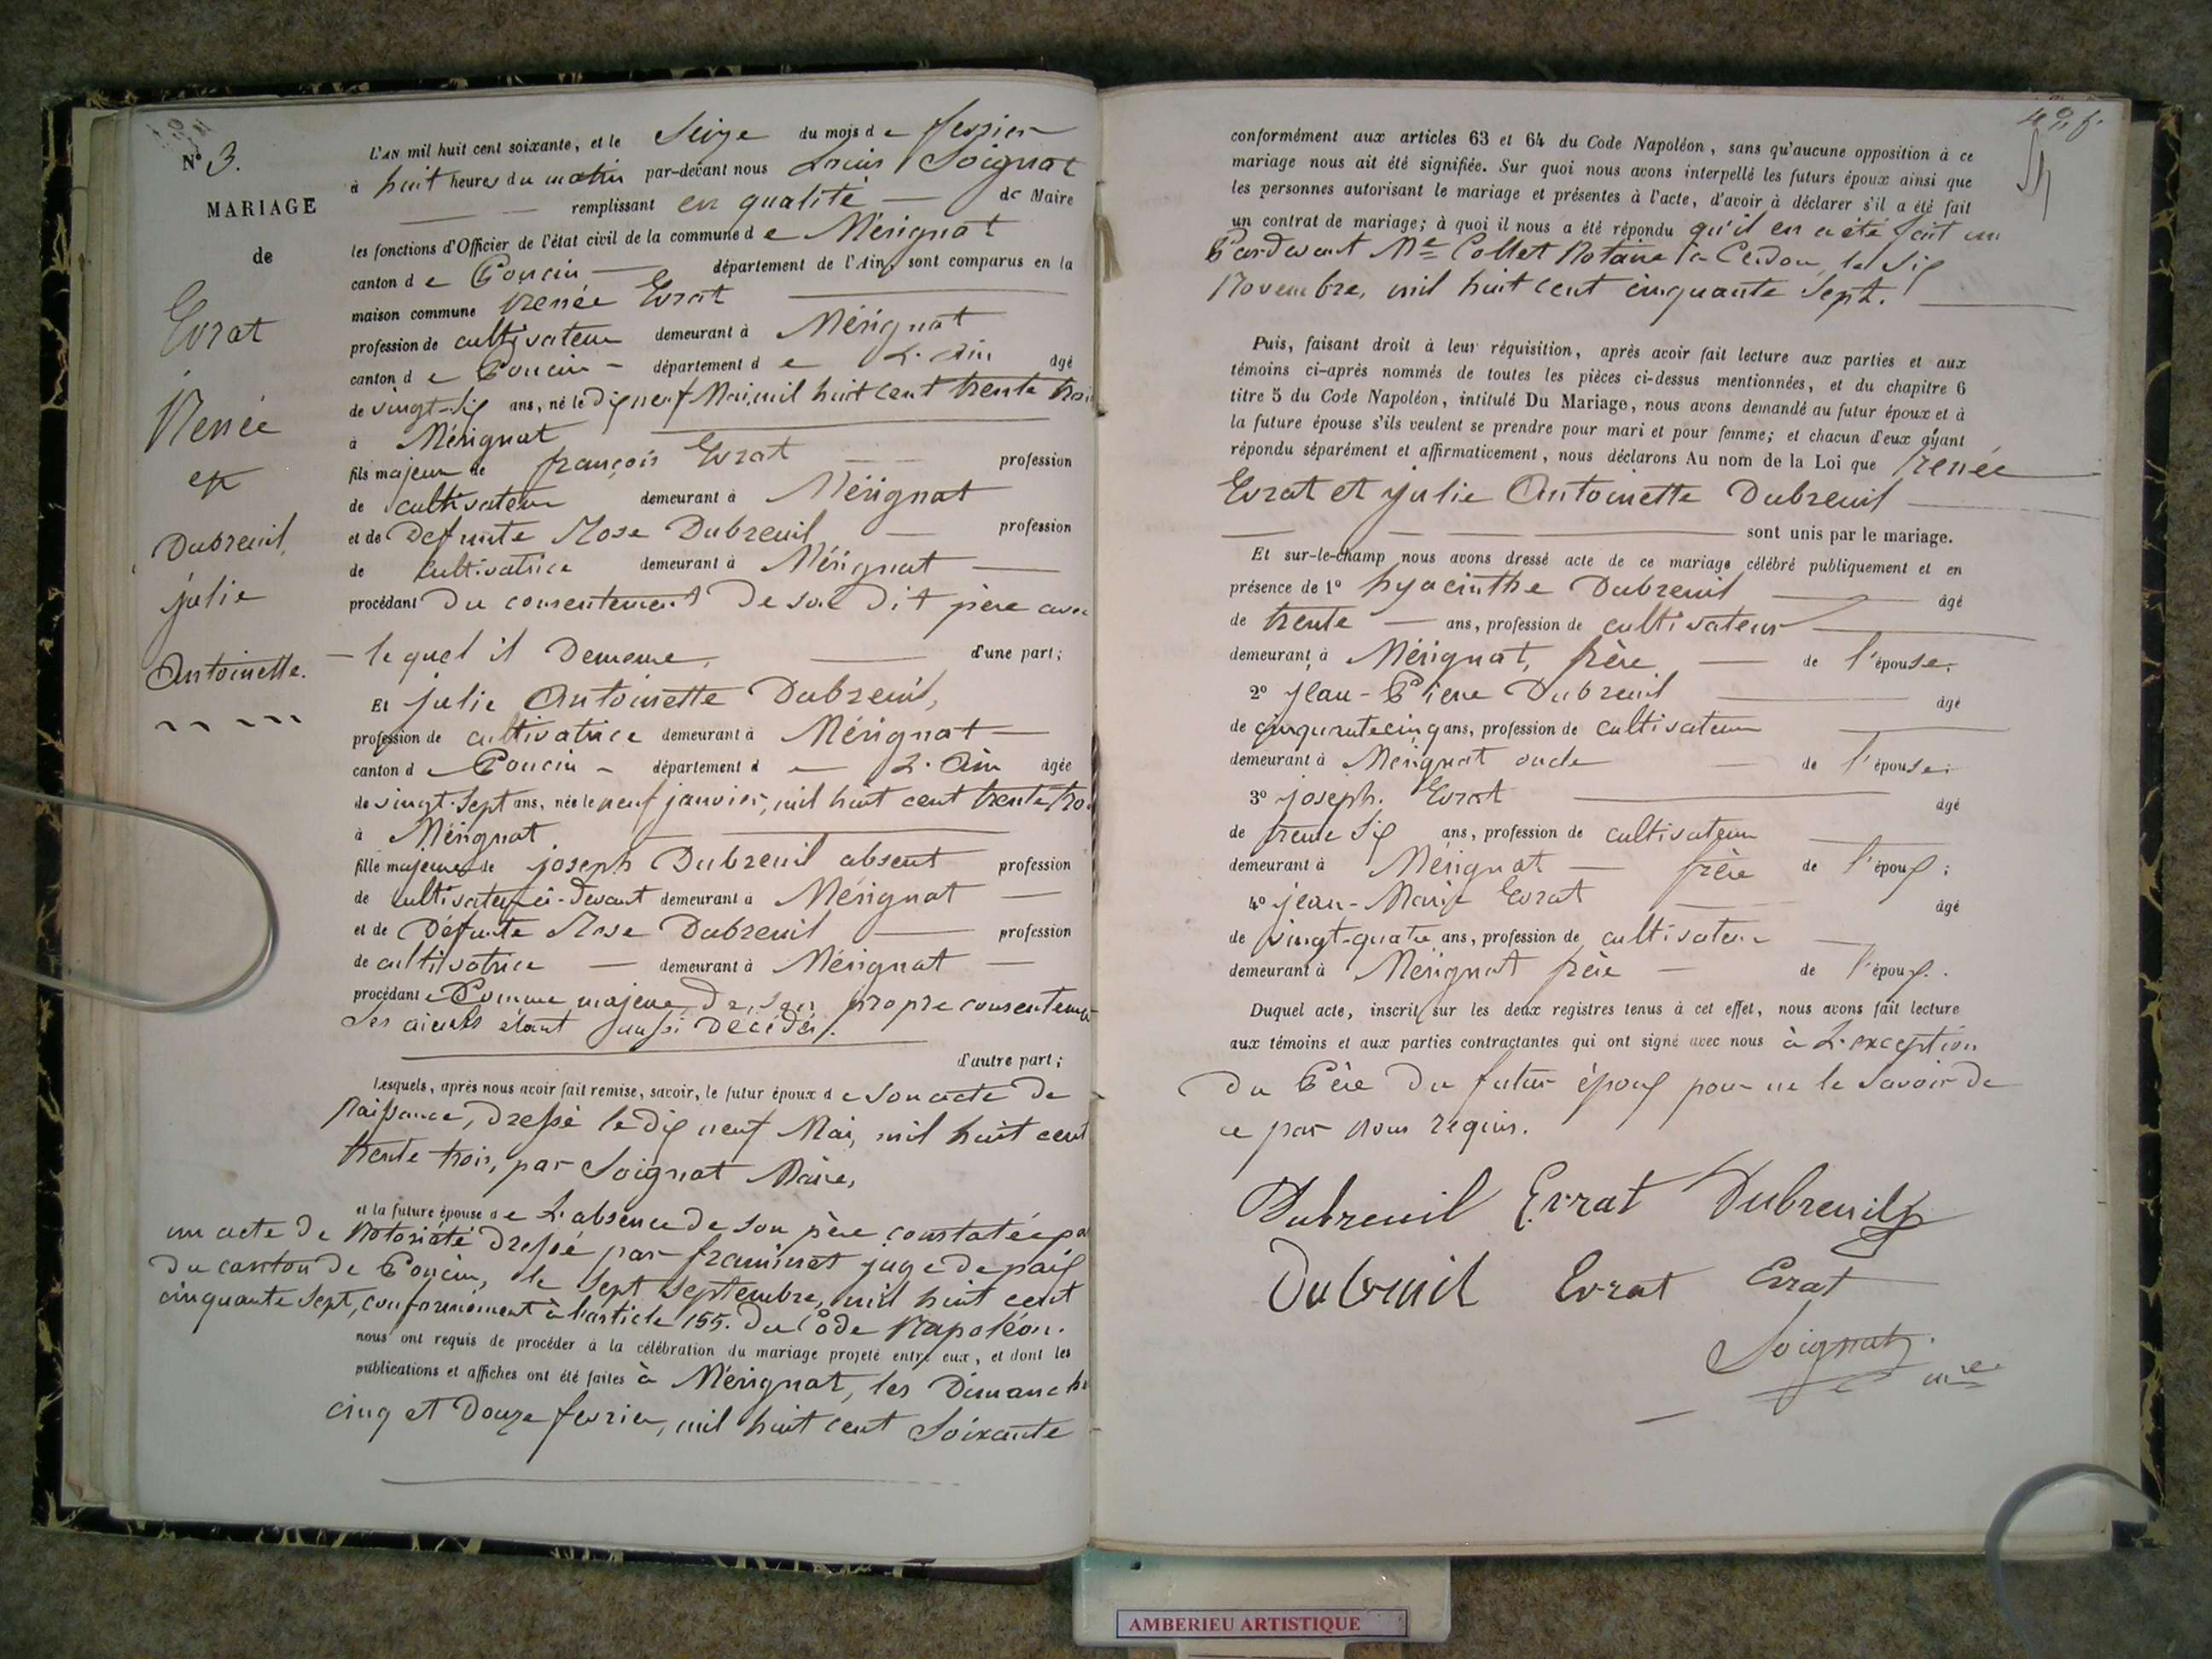 N° 3.
MARIAGE
de
Evrat
Renée
et
Dubreuil,
julie
Antoinette.
L'AN mil huit cent soixante, et le Seize du mois de fevrier
à huit heures du matin par-devant nous Louis Soignat
remplissant en qualité de Maire
les fonctions d'Officier de l'état civil de la commune de Mérignat
canton de Poncin département de l'Ain, sont comparus en la
maison commune Renée Evrat
profession de cultivateur demeurant à Mérignat
canton de Poncin - département de L'Ain âgé
de vingt-six ans, né le dix neuf Mai, mil huit cent trente trois
à Mérignat
fils majeur de françois Evrat profession
de cultivateur demeurant à Mérignat
et de Defunte Rose Dubreuil profession
de cultivatrice demeurant à Mérignat
procédant du consentement de son dit père avec
lequel il demeure, d'une part;
Et julie Antoinette Dubreuil,
profession de cultivatrice demeurant à Mérignat
canton de Poncin - département de L'Ain âgée
de vingt-sept ans, née le neuf janvier, mil huit cent trente trois
à Mérignat
fille majeure de joseph Dubreuil absent profession
de cultivateur ci-devant demeurant à Mérignat
et de Défunte Rose Dubreuil profession
de cultivatrice demeurant à Mérignat
procédant Comme majeure de son propre consentement
Ses aieuls étant aussi décédés.
d'autre part;
Lesquels, après nous avoir fait remise, savoir, le futur époux de son acte de
Naissance, dressé le dix neuf Mai, mil huit cent
trente trois, par Soignat Maire,
et la future épouse de L'absence de son père constatée par
un acte de Notoriété dressé par juge de paix
du canton de Poncin, le sept septembre, mil huit cent
cinquante sept, conformément à l'article 155. du Code Napoléon.
nous ont requis de procéder à la célébration du mariage projeté entre eux, et dont les
publications et affiches ont été faites à Mérignat, les Dimanche
cinq et Douze fevrier, mil huit cent Soixante
conformément aux articles 63 et 64 du Code Napoléon, sans qu'aucune opposition à ce
mariage nous ait été signifiée. Sur quoi nous avons interpellé les futurs époux ainsi que
les personnes autorisant le mariage et présentes à l'acte, d'avoir à déclarer s'il a été fait
un contrat de mariage; à quoi il nous a été répondu qu'il en a été fait un
Pardevant Me Collet Notaire à Cerdon, le Six
Novembre, mil huit cent cinquante Sept.
Puis, faisant droit à leur réquisition, après avoir fait lecture aux parties et aux
témoins ci-après nommés de toutes les pièces ci-dessus mentionnées, et du chapitre 6
titre 5 du Code Napoléon, intitulé Du Mariage, nous avons demandé au futur époux et à
la future épouse s'ils veulent se prendre pour mari et pour femme; et chacun d'eux ayant
répondu séparément et affirmativement, nous déclarons Au nom de la Loi que Renée
Evrat et julie Antoinette Dubreuil
sont unis par le mariage.
Et sur-le-champ nous avons dressé acte de ce mariage célébré publiquement et en
présence de 1° hyacinthe Dubreuil âgé
de trente ans, profession de cultivateur
demeurant à Mérignat, frère de l'épouse;
2° Jean-Pierre Dubreuil âgé
de cinquantecinq ans, profession de cultivateur
demeurant à Mérignat oncle de l'épouse;
3° joseph. Evrat âgé
de trente Six ans, profession de cultivateur
demeurant à Mérignat frère de l'époux;
4° jean-Marie Evrat âgé
de vingt-quatre ans, profession de cultivateur
demeurant à Mérignat frère de l'époux.
Duquel acte, inscrit sur les deux registres tenus à cet effet, nous avons fait lecture
aux témoins et aux parties contractantes qui ont signé avec nous à L'exception
du Père du futur époux pour ne le Savoir de
ce par Nous requis.
Dubreuil Evrat Dubreuil
Dubreuil Evrat Evrat
Soignat
mre
AMBERIEU ARTISTIQUE